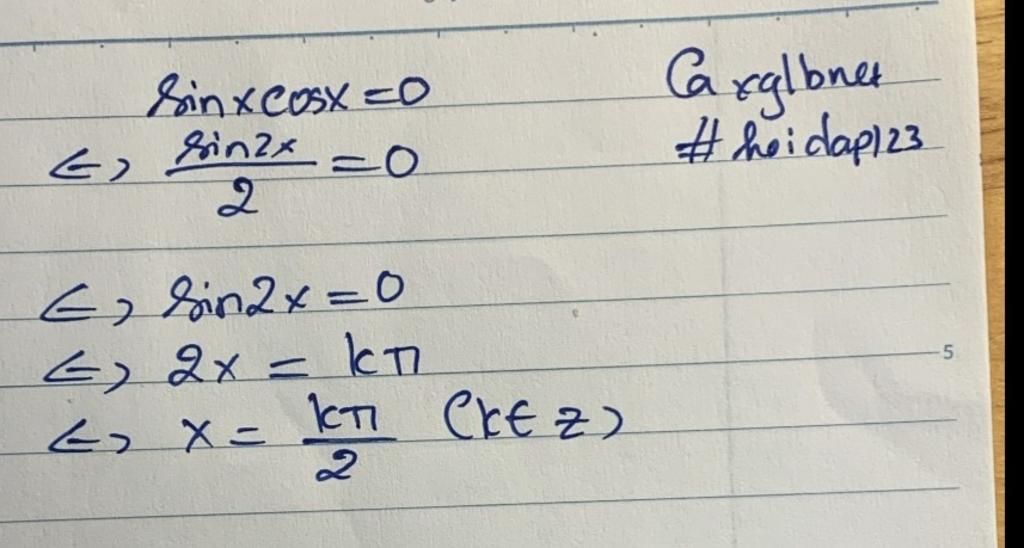 sinxcosx=0
<=> sin2x/2 =0
<=> sin2x=0
<=> 2x = kπ
<=> x = kπ/2 (k∈z)
#hoidap123
5